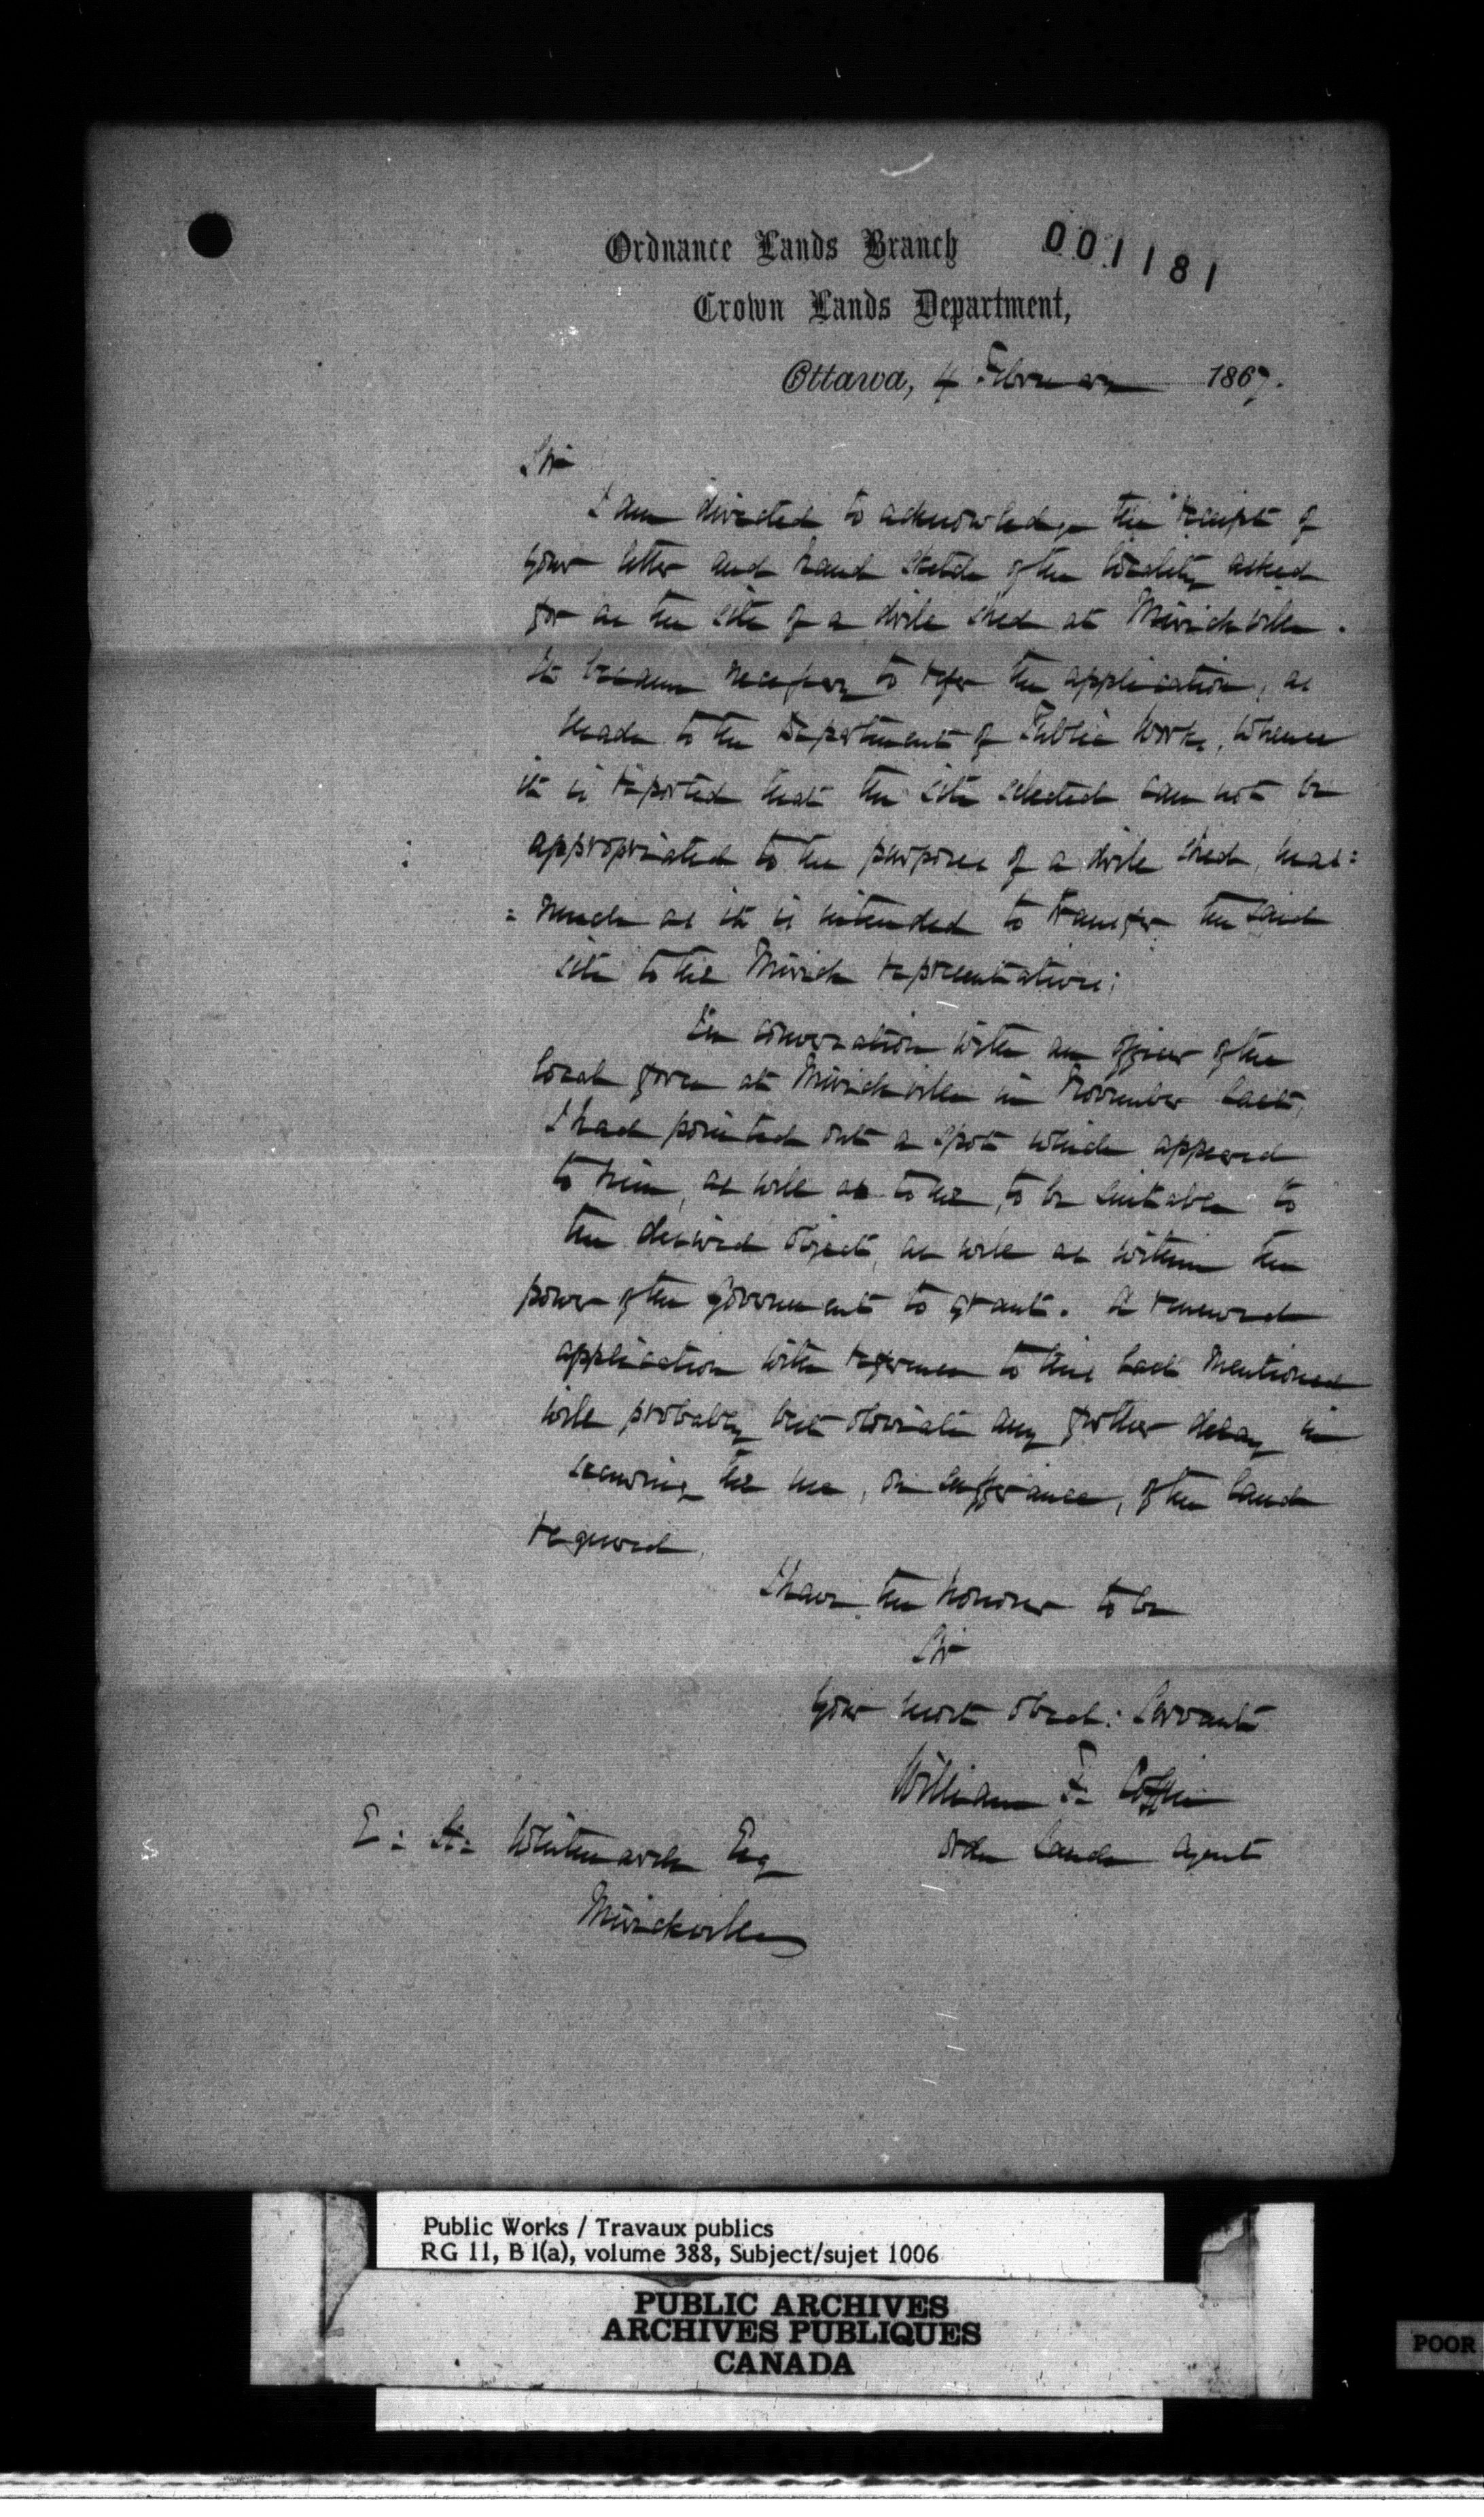 Ordnance Lands Branch 001181
Crown Lands Department,
Ottawa, 4 February 1867.
Sir
I am directed to acknowledge the receipt of
your letter and hand sketch of the locality asked
for as the site of a drill shed at Mirickville.
It became necessary to refer the application, as
made to the Department of Public Works, whence
it is reported that the site selected can not be
appropriated to the purpose of a drill shed, inas=
=much as it is intended to transfer the said
site to the Mirick representatives:
In conversation with an officer of the
local force at Mirickville in November last,
I had pointed out a spot which appeared
to him, as well as to me, to be suitable to
the desired object, as well as within the
power of the Government to grant. A renewed
application with reference to this last mentioned
will probably best obviate any further delay in
securing the use, on sufferance, of the land
required.
I have the honour to be
Sir
Your most obed: Servant
William F. Coffin
Ordn Lands Agent
E: H: Whitmarsh Esq
Mirickville
Public Works / Travaux publics
RG 11, B 1(a), volume 388, Subject/sujet 1006
PUBLIC ARCHIVES
ARCHIVES PUBLIQUES
CANADA
POOR